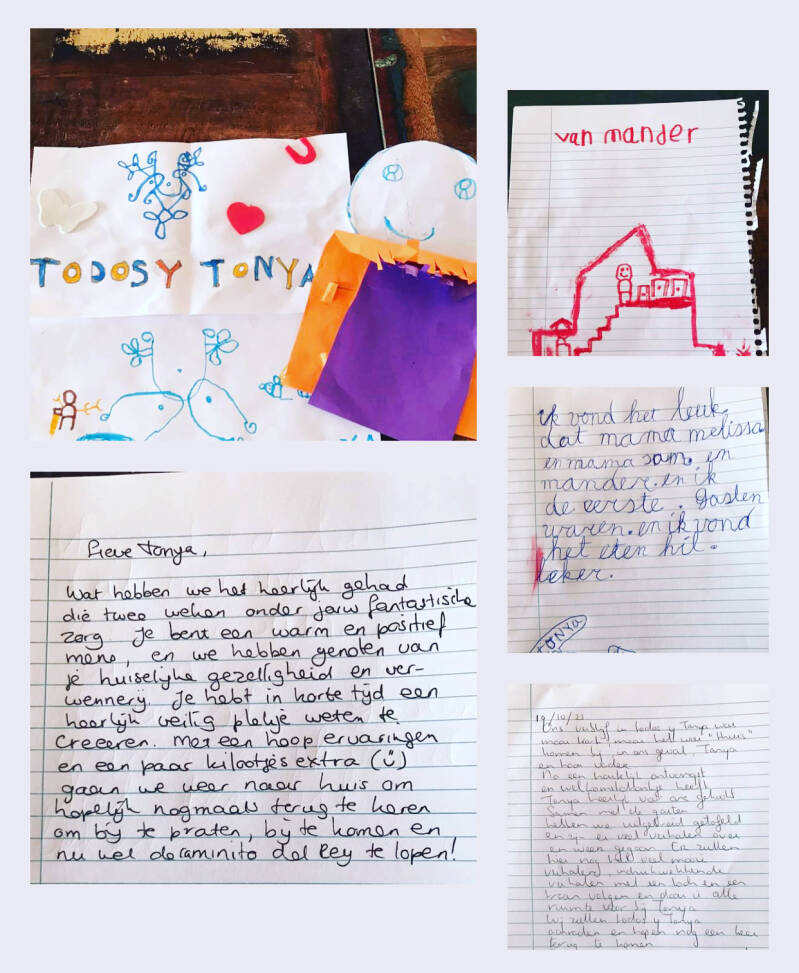 U
TODOSY TONYA
van mander
ik vond het leuk
dat mama melissa
en mama sam. en
mander. en ik
de eerste. Gasten
waren. en ik vond
het eten hil.
leker.
TONYA
Lieve Tonya,
Wat hebben we het heerlijk gehad
die twee weken onder jouw fantastische
zorg. Je bent een warm en positief
mens, en we hebben genoten van
je huiselijke gezelligheid en ver-
wennerij. Je hebt in korte tijd een
heerlijk veilig plekje weten te
creeeren. Met een hoop ervaringen
en een paar kilootjes extra (ü)
gaan we weer naar huis om
hopelijk nogmaals terug te keren
om bij te praten, bij te komen en
nu wel de caminito del Rey te lopen!
19/10/21
Ons verblijf in Todos y Tonya was
maar kort, maar het was "thuis"
komen bij, in ons geval, Tonya
en haar
Na een hartelijk ontvangst
en welkomstdrankje heeft
Tonya heerlijk voor ons gekookt
Samen met de gasten
hebben we uitgebreid getafeld
en zijn er veel verhalen over
en weer gegaan. Er zullen
hier nog veel mooie
verhalen, indrukwekkende
verhalen met een lach en een
traan volgen en daar is alle
ruimte voor bij Tonya
Wij zullen Todos y Tonya
aanraden en hopen nog een keer
terug te komen